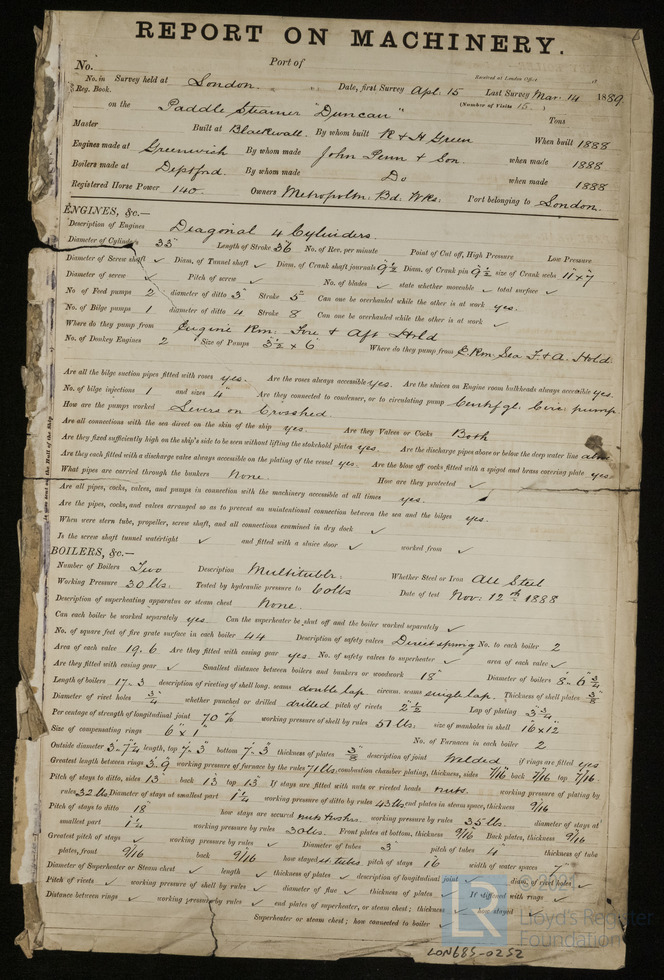 REPORT ON MACHINERY.
No. Port of
Received at London Office
No. in Reg. Book. Survey held at London. Date, first Survey Apl. 15 Last Survey Mar. 14 1889
(Number of Visits 15)
on the Paddle Steamer "Duncan" Tons
Master Built at Blackwall. By whom built R & H Green When built 1888
Engines made at Greenwich By whom made John Penn & Son. when made 1888
Boilers made at Deptford. By whom made Do when made 1888
Registered Horse Power 140. Owners Metropoltn. Bd. Wks. Port belonging to London.
ENGINES, &c.—
Description of Engines Diagonal 4 Cylinders
Diameter of Cylinders 33" Length of Stroke 36 No. of Rev. per minute Point of Cut off, High Pressure Low Pressure
Diameter of Screw shaft ✓ Diam. of Tunnel shaft ✓ Diam. of Crank shaft journals 9½ Diam. of Crank pin 9½ size of Crank webs 11×7
Diameter of screw ✓ Pitch of screw ✓ No. of blades ✓ state whether moveable ✓ total surface ✓
No. of Feed pumps 2 diameter of ditto 3" Stroke 5" Can one be overhauled while the other is at work yes.
No. of Bilge pumps 1 diameter of ditto 4 Stroke 8 Can one be overhauled while the other is at work ✓
Where do they pump from Engine Rm. Fore & Aft Hold
No. of Donkey Engines 2 Size of Pumps 3½ × 6 Where do they pump from E. Rm. Sea F. & A. Hold.
Are all the bilge suction pipes fitted with roses yes. Are the roses always accessible yes. Are the sluices on Engine room bulkheads always accessible yes.
No. of bilge injections 1 and sizes 4" Are they connected to condenser, or to circulating pump Centrfgl. Circ. pump
How are the pumps worked Levers on Crosshed
Are all connections with the sea direct on the skin of the ship yes. Are they Valves or Cocks Both
Are they fixed sufficiently high on the ship's side to be seen without lifting the stokehold plates yes. Are the discharge pipes above or below the deep water line above
Are they each fitted with a discharge valve always accessible on the plating of the vessel yes. Are the blow off cocks fitted with a spigot and brass covering plate yes.
What pipes are carried through the bunkers None. How are they protected ✓
Are all pipes, cocks, valves, and pumps in connection with the machinery accessible at all times yes.
Are the pipes, cocks, and valves arranged so as to prevent an unintentional connection between the sea and the bilges yes.
When were stern tube, propeller, screw shaft, and all connections examined in dry dock ✓
Is the screw shaft tunnel watertight ✓ and fitted with a sluice door ✓ worked from ✓
BOILERS, &c.—
Number of Boilers Two Description Multitublr. Whether Steel or Iron All Steel
Working Pressure 30 lbs. Tested by hydraulic pressure to 60 lbs Date of test Nov. 12th 1888
Description of superheating apparatus or steam chest None.
Can each boiler be worked separately yes Can the superheater be shut off and the boiler worked separately ✓
No. of square feet of fire grate surface in each boiler 44 Description of safety valves Direct spring No. to each boiler 2
Area of each valve 19.6 Are they fitted with easing gear yes. No. of safety valves to superheater ✓ area of each valve ✓
Are they fitted with easing gear ✓ Smallest distance between boilers and bunkers or woodwork 18" Diameter of boilers 8-6¾
Length of boilers 17-3 description of riveting of shell long. seams double lap circum. seams single lap. Thickness of shell plates 3/8
Diameter of rivet holes ¾ whether punched or drilled drilled pitch of rivets 2½ Lap of plating 3¾
Percentage of strength of longitudinal joint 70% working pressure of shell by rules 51 lbs. size of manholes in shell 16×12
Size of compensating rings 6"×1" No. of Furnaces in each boiler 2
Outside diameter 3-7¼ length, top 7-3 bottom 7-3 thickness of plates 3/8 description of joint Welded if rings are fitted yes
Greatest length between rings 3-9 working pressure of furnace by the rules 71 lbs. combustion chamber plating, thickness, sides 7/16 back 7/16 top 7/16.
Pitch of stays to ditto, sides 13" back 13 top 13 If stays are fitted with nuts or riveted heads nuts. working pressure of plating by
rules 32 lbs Diameter of stays at smallest part 1¼ working pressure of ditto by rules 43 lbs end plates in steam space, thickness 9/16
Pitch of stays to ditto 18" how stays are secured working pressure by rules 35 lbs. diameter of stays at
smallest part 1¼ working pressure by rules 30 lbs. Front plates at bottom, thickness 9/16 Back plates, thickness 9/16
Greatest pitch of stays ✓ working pressure by rules ✓ Diameter of tubes 3" pitch of tubes 4" thickness of tube
plates, front 9/16 back 9/16 how stayed st. tubes pitch of stays 16 width of water spaces 7"
Diameter of Superheater or Steam chest ✓ length ✓ thickness of plates ✓ description of longitudinal joint ✓ diam. of rivet holes ✓
Pitch of rivets ✓ working pressure of shell by rules ✓ diameter of flue ✓ thickness of plates ✓ If stiffened with rings ✓
Distance between rings ✓ working pressure by rules ✓ end plates of superheater, or steam chest; thickness ✓ how stayed ✓
Superheater or steam chest; how connected to boiler ✓
LR © 2021 Lloyd's Register Foundation
LON685-0252